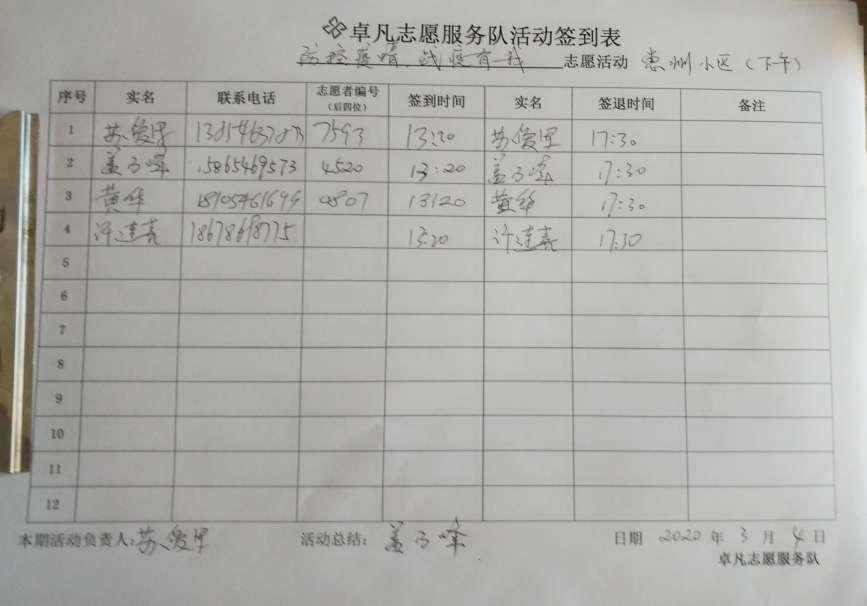 卓凡志愿服务队活动签到表
防控疫情、战疫有我 志愿活动 惠州小区(下午)
序号 实名 联系电话 志愿者编号(后四位) 签到时间 实名 签退时间 备注
1 苏俊里 7593 13:20 苏俊里 17:30
2 盖子峰 15865469573 4520 13:20 盖子峰 17:30
3 黄华 18905461699 0807 13:20 黄华 17:30
4 许连喜 18678698775 13:20 许连喜 17:30
5
6
7
8
9
10
11
12
本期活动负责人:苏俊里 活动总结: 盖子峰 日期 2020 年 3 月 4 日
卓凡志愿服务队